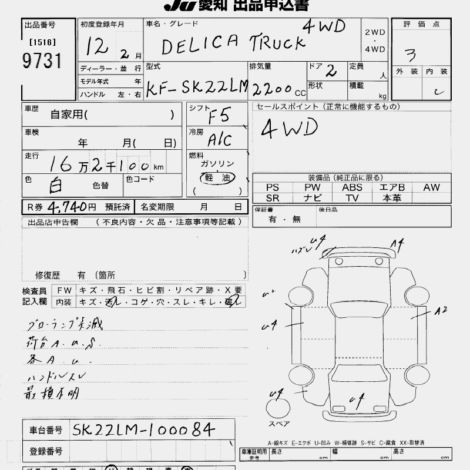 JU 愛知 出品申込書
出品番号
[1518]
9731
初度登録年月
12年 2月
車名・グレード
DELICA TRUCK 4WD
2WD
・
4WD
評価点
3
外装 内装
ディーラー・並行
モデル年式 年
ハンドル 左・右
型式
KF-SK22LM
排気量
2200cc
ドア 2
形状
定員
人
積載
kg
車歴
自家用( )
車検
年 月( 日)
走行
16万2千100km
色
白
色替
色コード
シフト
F5
冷房
A/C
燃料
ガソリン
軽油
セールスポイント(正常に機能するもの)
4WD
装備品(純正品に限る)
PS PW ABS エアB AW
SR ナビ TV 本革
R券 4,740円 預託済 名変期限 月 日
保証書
有・無
後日品
出品店申告欄 (不良内容・欠品・注意事項等記載)
修復歴 有(箇所 )
検査員
記入欄
FW キズ・飛石・ヒビ割・リペア跡・X要
内装 キズ・汚レ・コゲ・穴・スレ・キレ・
荷台A.U.S.
各A.U.
ハンドルスレ
最積不明
ハズレ
U4
A4
U4
A2
U4
スペア
A-線キズ E-エクボ U-凹み W-補修跡 S-サビ C-腐食 XX-取替済
車台番号 SK22LM-100084
登録番号
車庫証明用
参考
長さ
cm
幅
cm
高さ
cm